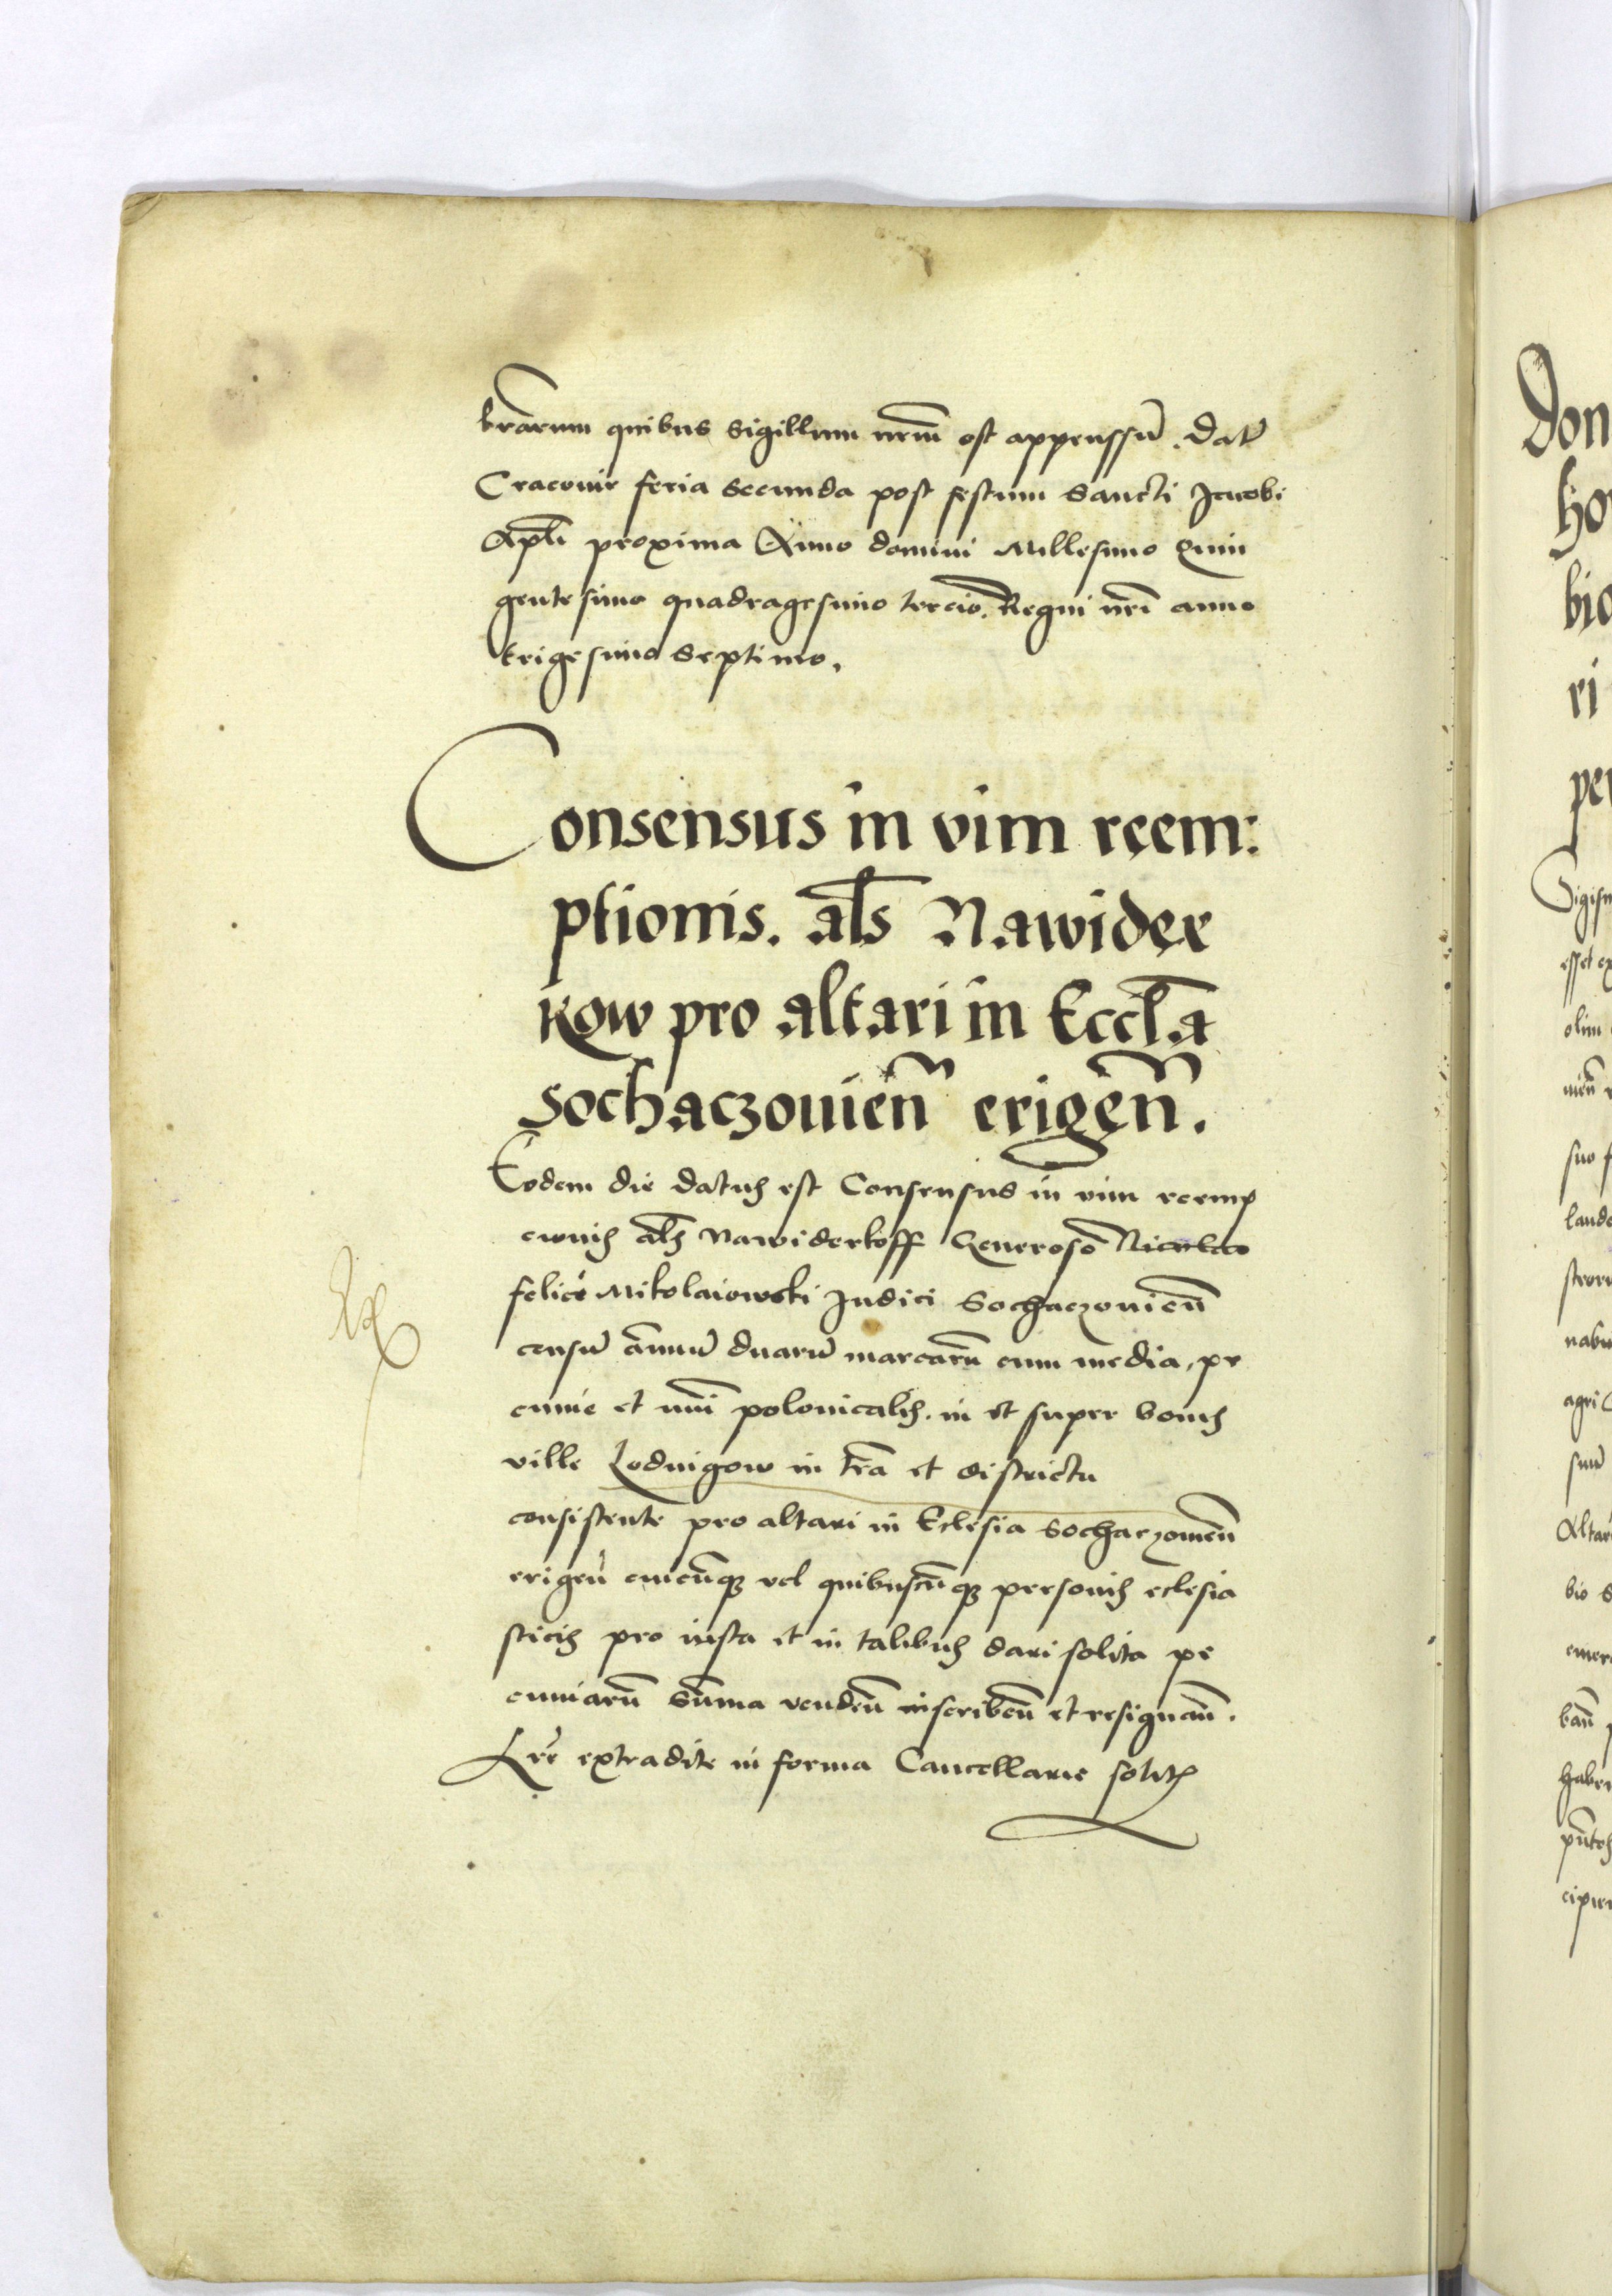 lrarum quibus Sigillum nrum est appenssu. Dat
Cracovie feria Secunda post festum Sancti Jacobi
Apli proxima Anno domini Millesimo Quin
gentesimo quadragesimo tercio. Regni nri anno
trigesimo Septimo.
Consensus in vim reem:
ptionis. als Nawider
kow pro altari in Eccla
Sochaczovien erigen.
Eodem die datus est Consensus in vim reemp
cionis als Nawiderkoff Generoso Nicolao
felici Mikolaiowski Judici Sochaczovien
censu annuu duaru marcaru cum media, pe
cunie et nui polonicalis. in et super bonis
ville Lodvigow in tra et districtu
consistente pro altari in Eclesia Sochaczovien
erigen cuicunq vel quibuscunq personis eclesia
sticis pro iusta et in talibus dari solita pe
cuniaru Suma venden inscriben et resignan.
Lre extradite in forma Cancellarie solit
Don
ko
bio
ri
per
Sigism
esset ex
olim
suo f
land
nabu
agri
sum
Altar
bio S
habe
cipie